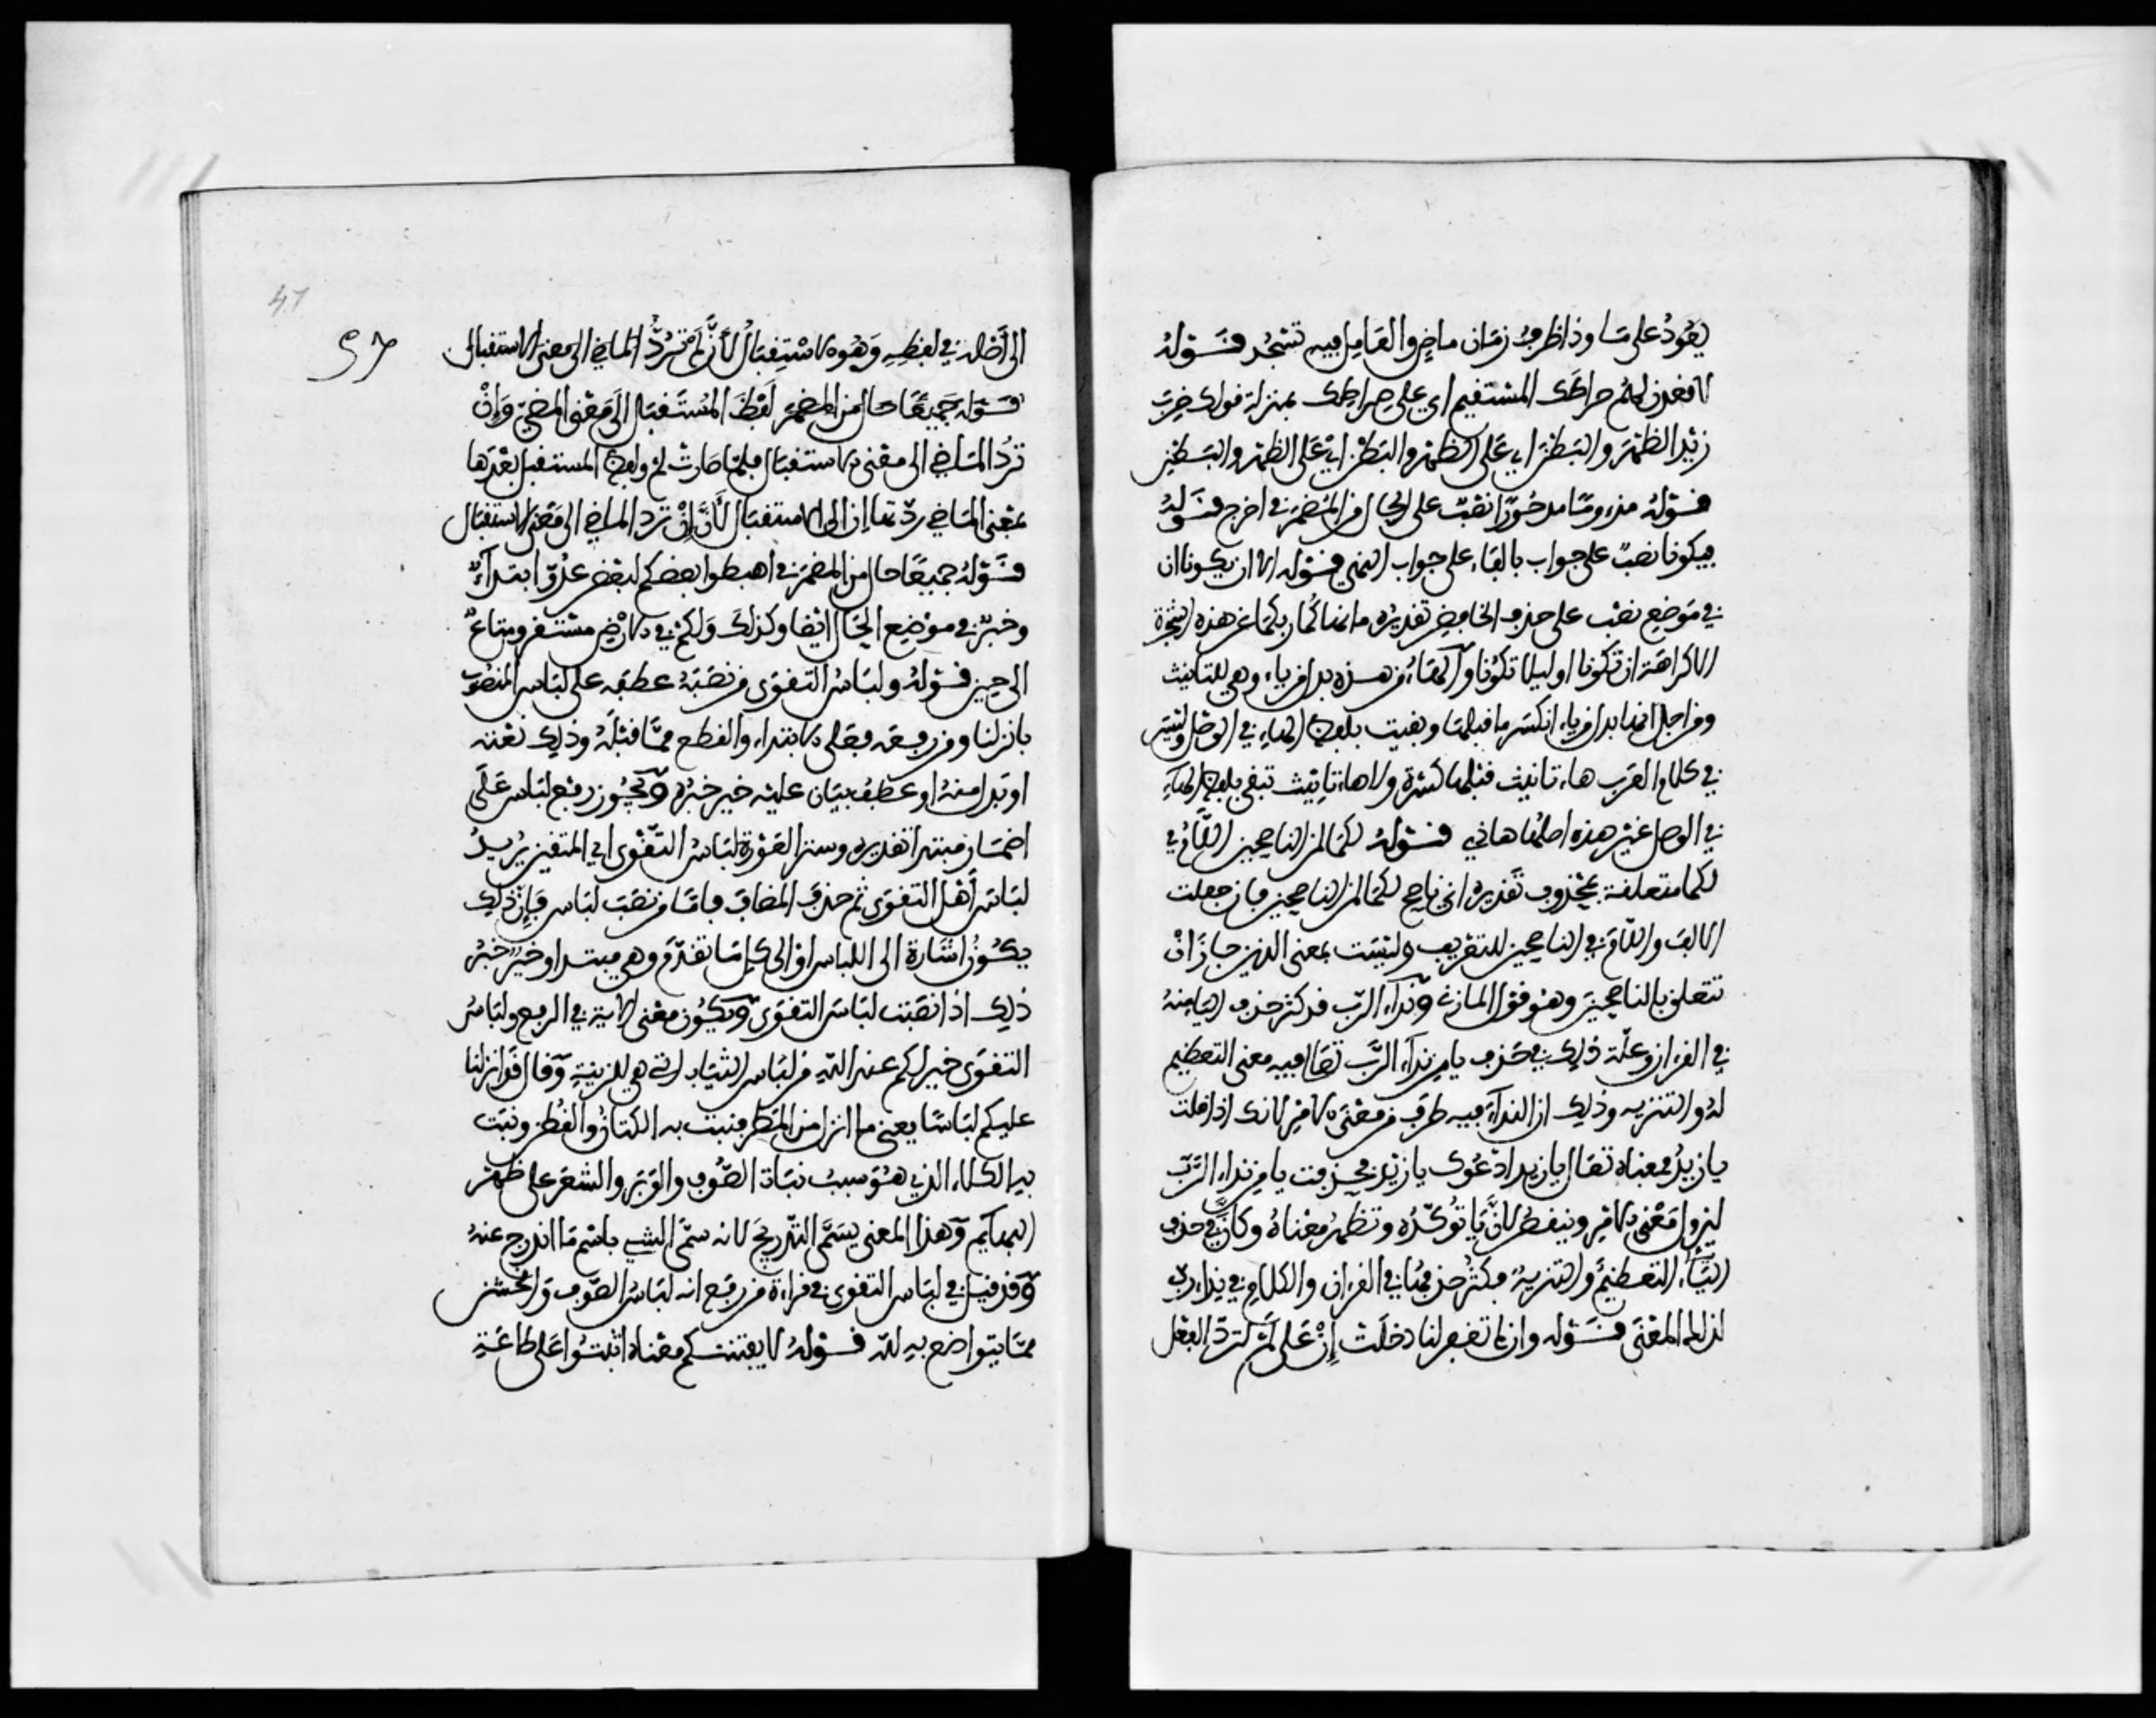 يعود على ما وذا ظرف زمان ماض والعامل فيه تسجد قوله
لاقعدن لهم صراطك المستقيم اي على صراطك بمنزلة قولك ضرب
زيد الظهر والبطن اي على الظهر والبطن اي على الظهر والبطن
قوله مذءوما مدحورا نصب على الحال من المضمر في اخرج قوله
فيكونا نصب على جواب بالفاء على جواب النهي قوله الا ان تكونا ان
في موضع نصب على حذف الخافض تقديره ما نهاكما ربكما عن هذه الشجرة
الا كراهة ان تكونا او ليلا تكونا والهاء من هذه بدل من ياء وهي للتانيث
ومن اجل انها بدل من ياء انكسر ما قبلها وبقيت بلفظ الهاء في الوصل وليس
في كلام العرب هاء تانيث قبلها كسرة ولا هاء تانيث تبقى بلفظ الهاء
في الوصل غير هذه اصلها هاذي قوله لكما لمن الناصحين اللام في
لكما متعلقة بمحذوف تقديره اني ناصح لكما لمن الناصحين فان جعلت
الالف واللام في الناصحين للتعريف وليست بمعنى الذين جاز ان
تتعلق بالناصحين وهو قول المازني ونداء الرب قد كثر حذف الياء منه
في القرءان وعلة ذلك في حذف يا من نداء الرب تعالى فيه معنى التعظيم
له والتنزيه وذلك ان النداء فيه طرف من معنى الامر لانك اذا قلت
يا زيد فمعناه تعال يا زيد ادعوك يا زيد فحذفت يا من نداء الرب
ليزول معنى الامر وينقص لان يا تؤكده وتظهر معناه وكان في حذف
الياء التعظيم والتنزيه فكثر حذفها في القرءان والكلام في نداء رب
لذلك المعنى قوله وان لم تغفر لنا دخلت ان على لم لترد الفعل
الى اصله في لفظه وهو الاستقبال لان لم ترد الماضي الى معنى الاستقبال
قوله جميعا حال من المضمر لفظ المستقبل الى معنى المضي وان
ترد الماضي الى معنى الاستقبال فلما صارت لم ولفظ المستقبل بعدها
بمعنى الماضي ردتها ان الى الاستقبال لان ان ترد الماضي الى معنى الاستقبال
قوله جميعا حال من المضمر في اهبطوا بعضكم لبعض عدو ابتداء
وخبر في موضع الحال ايضا وكذلك ولكم في الارض مستقر ومتاع
الى حين قوله ولباس التقوى من نصبه عطفه على لباس المنصوب
بانزلنا ومن رفعه فعلى الابتداء والقطع مما قبله وذلك نعته
او بدل منه او عطف بيان عليه خير خبره ويجوز رفع لباس على
اضمار مبتدا تقديره وستر العورة لباس التقوى اي المتقين يريد
لباس اهل التقوى ثم حذف المضاف فاما من نصب لباس فان ذلك
يكون اشارة الى اللباس او الى كل ما تقدم وهي مبتدا وخير خبر
ذلك اذا نصبت لباس التقوى ويكون معنى الاية في الرفع ولباس
التقوى خير لكم عند الله من لباس الثياب التي هي للزينة وقال قد انزلنا
عليكم لباسا يعني ما انزل من المطر فنبت به الكتان والقطن ونبت
به الكلاء الذي هو سبب نبات الصوف والوبر والشعر على ظهر
البهايم وهذا المعنى يسمى التدريج لانه سمى الشيء باسم ما اندرج عنه
وقد قيل في لباس التقوى في قراءة من رفع انه لباس الصوف والخشن
مما يتواضع به لله قوله لا يفتننكم معناه اثبتوا على طاعة
47